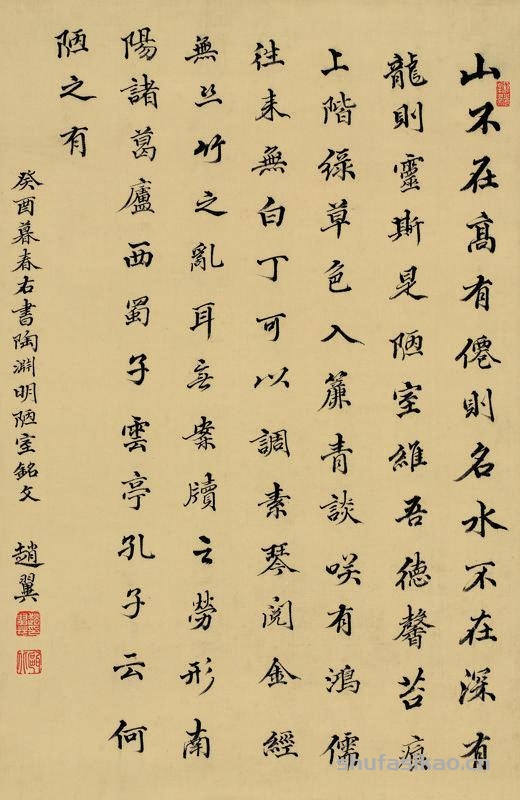 山不在髙有僊則名水不在深有
龍則靈斯是陋室維吾德馨苔痕
上階綠草色入簾青談咲有鴻儒
往来無白丁可以調素琴閱金經
無丝竹之亂耳无案牘之勞形南
陽諸葛廬西蜀子雲亭孔子云何
陋之有
癸酉暮春右書陶淵明陋室銘文 趙翼